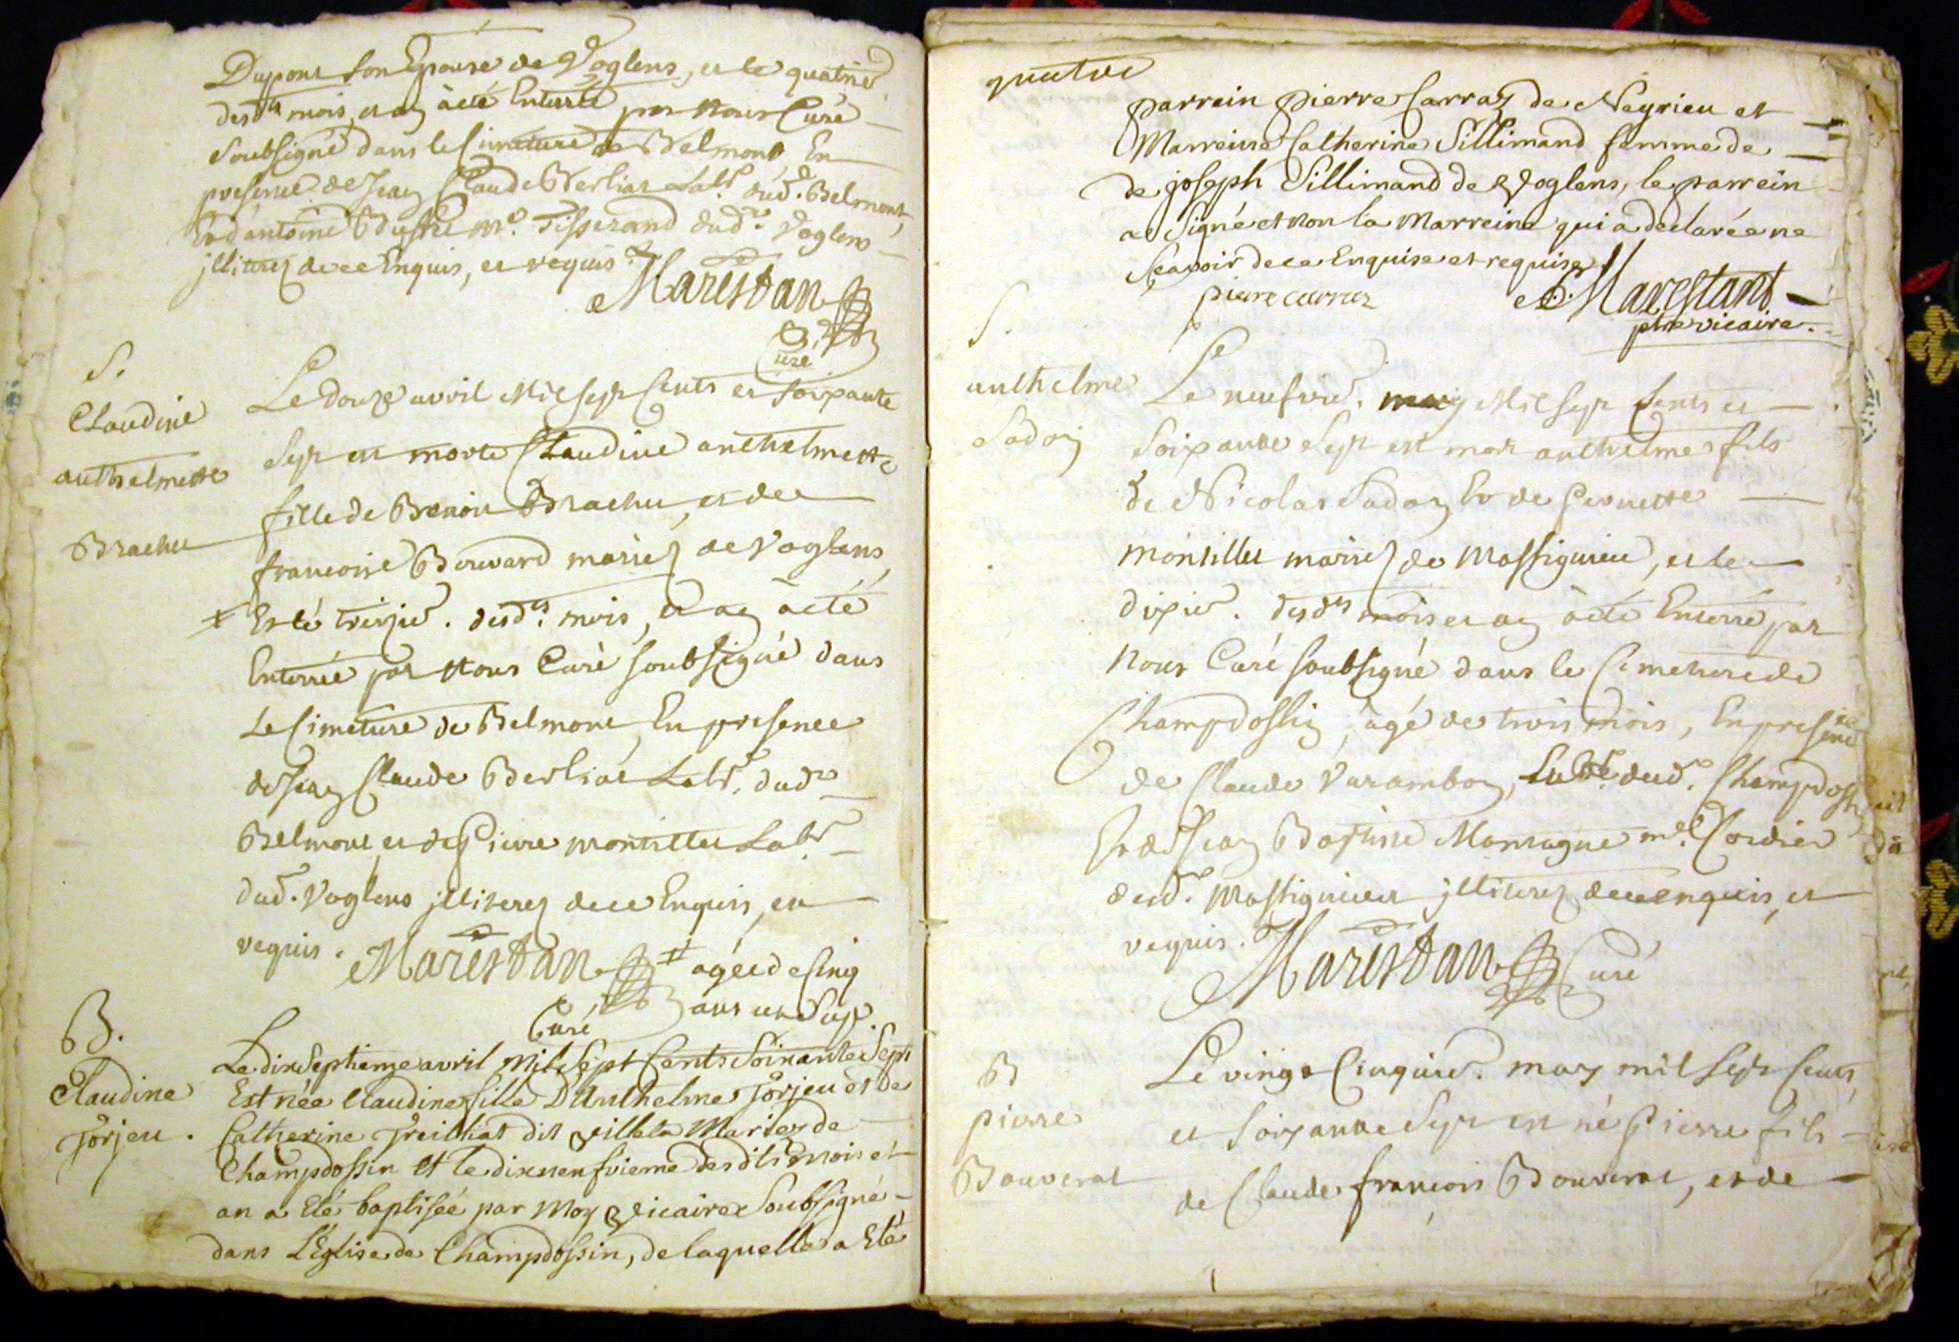 Dupont son Epouse de Voglens, et le quatrie.
desd.ts mois et an à eté Enterré par Nous Curé
Soubsigné dans le Cimeture de Belmont, En
presence de Jean Claude Berliat Lab.r dud. Belmont,
Et d'antoine m.e Tisserand dud. Voglens
jlliterez de ce Enquis, et requis.
Marestan
Curé
S.
Claudine
anthelmette
Brachu
Le douze avril Mil sept Cents et soixante
sept est morte Claudine anthelmette
fille de Benoit Brachu, et de
francoise Bouvard mariez de Voglens,
Et le treizie. desd.ts mois, et an à eté
Enterrée par Nous Curé soubsigné dans
Le Cimeture de Belmont, En presence
de Jean Claude Berliat Lab.r dud.
Belmont, et de Pierre montillet Lab.r
dud. Voglens jlliterez de ce Enquis, et
requis. Marestan
Curé
agée de Cinq
ans et
B.
Claudine
Jorjeu.
Le dix Septieme avril Mil Sept Cents Soixante Sept
Est née Claudine fille D'Anthelme Jorjeu et de
Catherine dit Mariez de
Champdossin et le dix neufvieme des dits mois et
an a Eté baptisée par Moy Vicaire Soubsigné
dans L'Eglise de Champdossin, de laquelle a Eté
quatre
parrein Pierre Carraz de Neyrieu et
Marreine Catherine Sillimand femme de
de joseph Sillimand de Voglens, le parrein
a Signé et non la Marreine qui a declarée ne
Sçavoir de ce Enquise et requise
pierre carraz
Marestant
ptre vicaire.
S.
anthelme
Sadoz
Le neufvie. may Mil sept Cents et
Soixante Sept est mort anthelme fils
de Nicolas Sadoz Et de Pernette
montillet mariez de Massignieu, et le
dixie. desd.ts mois et an à eté Enterré par
Nous Curé soubsigné dans le Cimeture de
Champdossin, âgé de trois mois, En presence
de Claude Varambon, Lab.r dud. Champdoss.
Et de Jean Baptiste Montagne m.e Cordier
dud. Massignieu jlliterez de ce enquis, et
requis.
Marestan Curé
B
Pierre
Bouverat
Le vingt Cinquie. may mil sept Cents,
et soixante Sept est né Pierre fils
de Claude françois Bouverat, et de